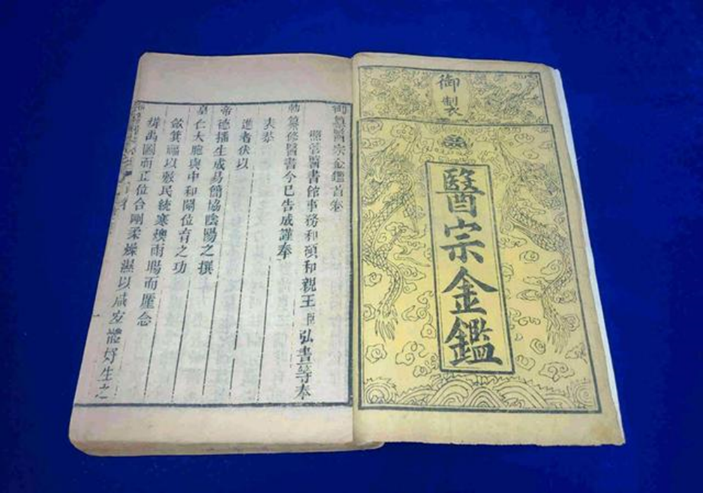 御製
醫宗金鑑
御製醫宗金鑑首卷
醫書館事務和碩和親王臣弘晝等奉
勅纂修醫書今已告成謹奉
表恭
進者伏以
帝德播生成易簡協陰陽之撰
皇仁大與中和開位育之功
斂箕福以敷民統寒燠雨暘而廑念
禹圖而正位合剛柔燥濕以咸安體好生之